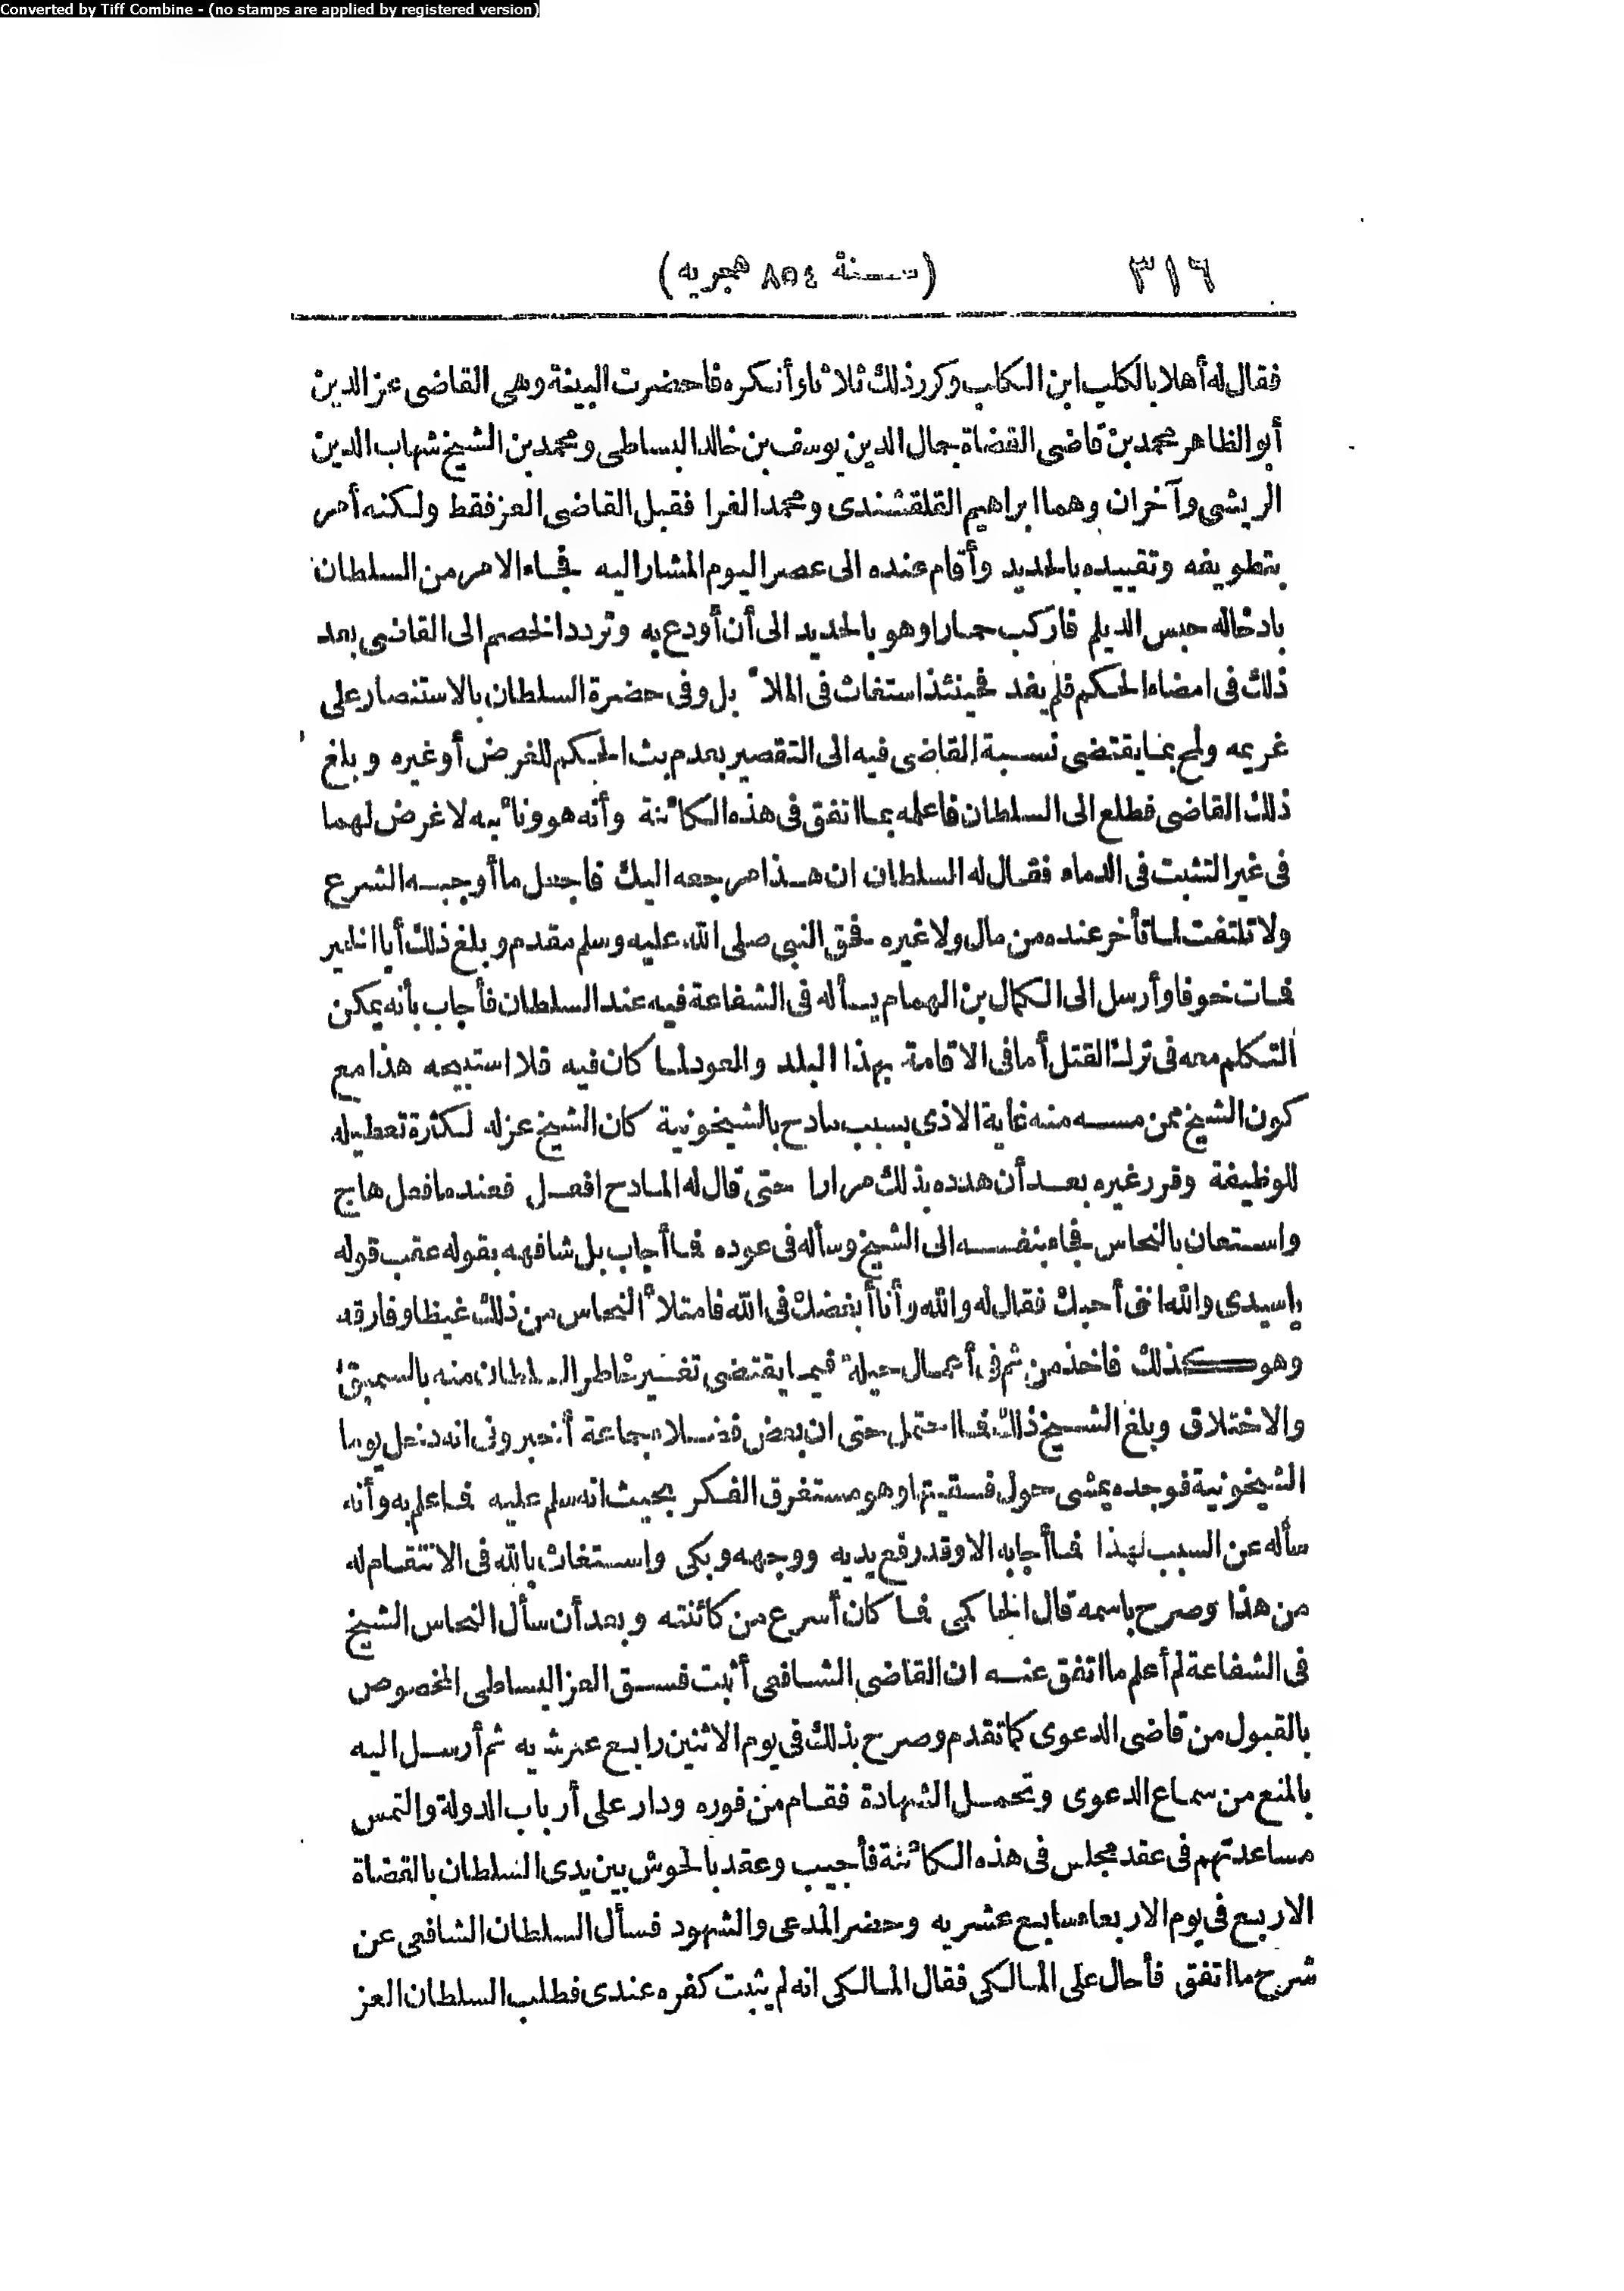 Converted by Tiff Combine - (no stamps are applied by registered version)
٣١٦ (سنة ٨٥٤ هجريه)
فقال له أهلا بالكلب ابن الكلب وكرر ذلك ثلاثا وأنكره فاحضرت البينة وهى القاضى عز الدين
أبو الظاهر محمد بن قاضى القضاة جمال الدين يوسف بن خالد البساطى ومحمد بن الشيخ شهاب الدين
الريشى وآخران وهما ابراهيم القلقشندى ومحمد الفرا فقبل القاضى العز فقط ولكنه أمر
بتطويفه وتقييده بالحديد وأقام عنده الى عصر اليوم المشار اليه فجاء الامر من السلطان
بادخاله حبس الديلم فاركب حمارا وهو بالحديد الى أن أودع به وتردد الخصم الى القاضى بعد
ذلك فى امضاء الحكم فلم يفد فحينئذ استغاث فى الملأ بل وفى حضرة السلطان بالاستنصار على
غريمه ولمح بما يقتضى نسبة القاضى فيه الى التقصير بعدم بث الحكم للغرض أو غيره وبلغ
ذلك القاضى فطلع الى السلطان فاعلمه بما اتفق فى هذه الكائنة وأنه هو ونائبه لا غرض لهما
فى غير التثبت فى الدماء فقال له السلطان ان هذا مرجعه اليك فاجعل ما أوجبه الشرع
ولا تلتفت لما تأخر عنده من مال ولا غيره فحق النبى صلى الله عليه وسلم مقدم وبلغ ذلك أبا الخير
فمات خوفا وأرسل الى الكمال بن الهمام يسأله فى الشفاعة فيه عند السلطان فأجاب بأنه يمكن
التكلم معه فى ترك القتل أما فى الاقامة بهذا البلد والعود لما كان فيه فلا استبيحه هذا مع
كون الشيخ ممن مسه منه غاية الاذى بسبب مادح بالشيخونية كان الشيخ عزله لكثرة تعطيله
للوظيفة وقرر غيره بعد أن هدده بذلك مرارا حتى قال له المادح افعل فعند ما فعل هاج
واستعان بالنحاس فجاء بنفسه الى الشيخ وسأله فى عوده فما أجاب بل شافهه بقوله عقب قوله
ياسيدى والله اننى أحبك فقال له والله وأنا أبغضك فى الله فامتلأ النحاس من ذلك غيظا وفارقه
وهو كذلك فاخذ من ثم فى أعمال حيلة فيما يقتضى تغير خاطر السلطان منه بالسميق
والاختلاق وبلغ الشيخ ذلك فما احتمل حتى ان بعض فضلاء جماعة أخبرونى انه دخل يوما
الشيخونية فوجده يمشى حول فسقيتها وهو مستغرق الفكر بحيث انه سلم عليه فما علم به وأنه
سأله عن السبب لهذا فما أجابه الا وقد رفع يديه ووجهه وبكى واستغاث بالله فى الانتقام له
من هذا وصرح باسمه قال الحاكى فما كان أسرع من كائنته وبعد أن سأل النحاس الشيخ
فى الشفاعة لم أعلم ما اتفق عنه ان القاضى الشافعى أثبت فسق العز البساطى المخصوص
بالقبول من قاضى الدعوى كما تقدم وصرح بذلك فى يوم الاثنين رابع عشريه ثم أرسل اليه
بالمنع من سماع الدعوى وتحمل الشهادة فقام من فوره ودار على أرباب الدولة والتمس
مساعدتهم فى عقد مجلس فى هذه الكائنة فأجيب وعقد بالحوش بين يدى السلطان بالقضاة
الاربع فى يوم الاربعاء سابع عشريه وحضر المدعى والشهود فسأل السلطان الشافعى عن
شرح ما اتفق فأحال على المالكى فقال المالكى انه لم يثبت كفره عندى فطلب السلطان العز